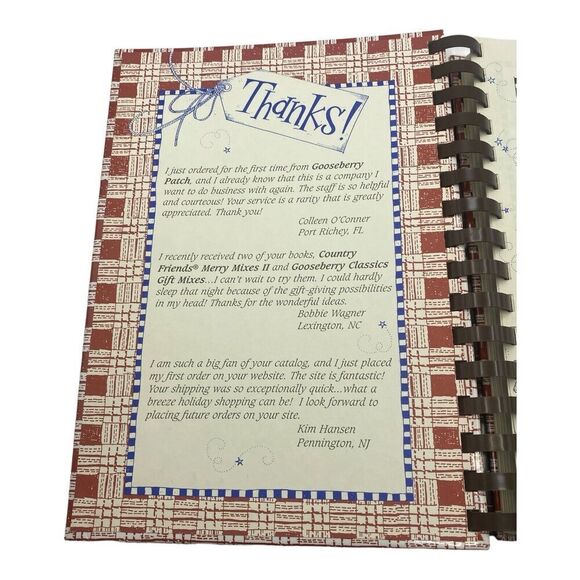 Thanks!
I just ordered for the first time from Gooseberry
Patch, and I already know that this is a company I
want to do business with again. The staff is so helpful
and courteous! Your service is a rarity that is greatly
appreciated. Thank you!
Colleen O'Conner
Port Richey, FL
I recently received two of your books, Country
Friends® Merry Mixes II and Gooseberry Classics
Gift Mixes...I can't wait to try them. I could hardly
sleep that night because of the gift-giving possibilities
in my head! Thanks for the wonderful ideas.
Bobbie Wagner
Lexington, NC
I am such a big fan of your catalog, and I just placed
my first order on your website. The site is fantastic!
Your shipping was so exceptionally quick...what a
breeze holiday shopping can be! I look forward to
placing future orders on your site.
Kim Hansen
Pennington, NJ